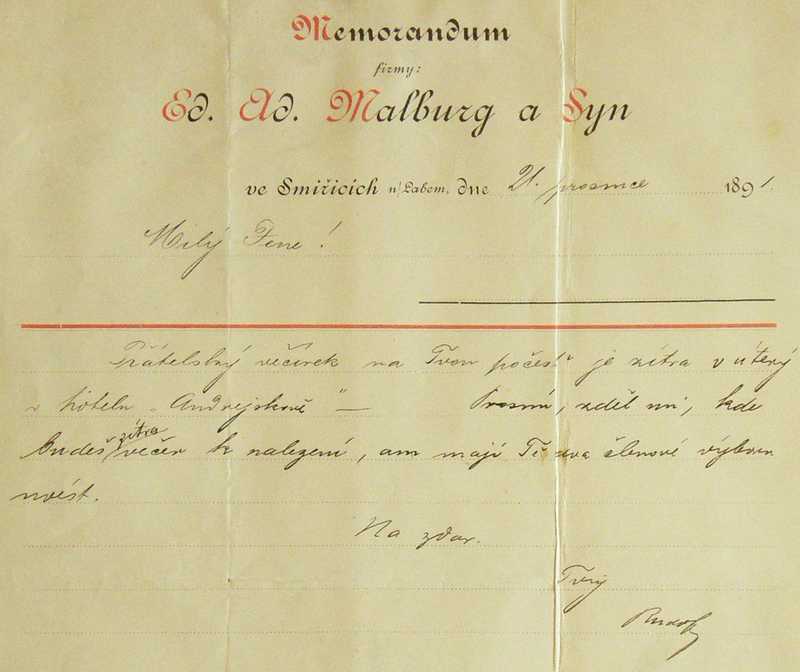 Memorandum
firmy:
Ed. Ad. Malburg a Syn
ve Smiřicích n/Labem, dne 21. prosince 1891.
Milý Fene!
Přátelský večírek na Tvou počest je zítra v úterý
v hotelu „Andrejskově“ — Prosím, zděl mi, kde
budeš zítra večer k nalezení, am mají Tě dva členové výboru
uvést.
Na zdar.
Tvůj
Rudolf